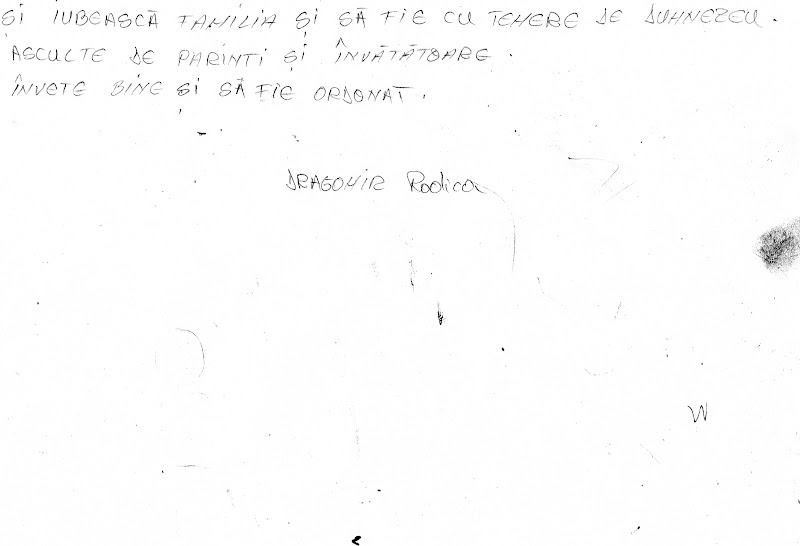 ȘI IUBEASCĂ FAMILIA ȘI SĂ FIE CU TEMERE DE DUMNEZEU.
ASCULTE DE PARINTI ȘI ÎNVĂTĂTOARE.
ÎNVETE BINE ȘI SĂ FIE ORDONAT.
DRAGOMIR Rodica
W